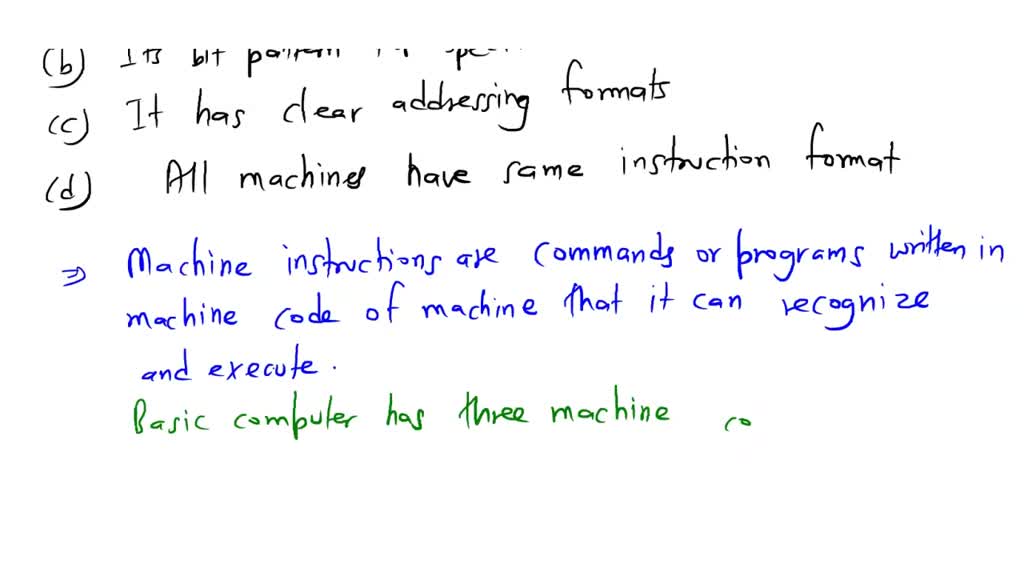 (b) Its bit pattern
(c) It has clear addressing formats
(d) All machines have same instruction format
⇒ Machine instructions are commands or programs written in
machine code of machine that it can recognize
and execute.
Basic computer has three machine co